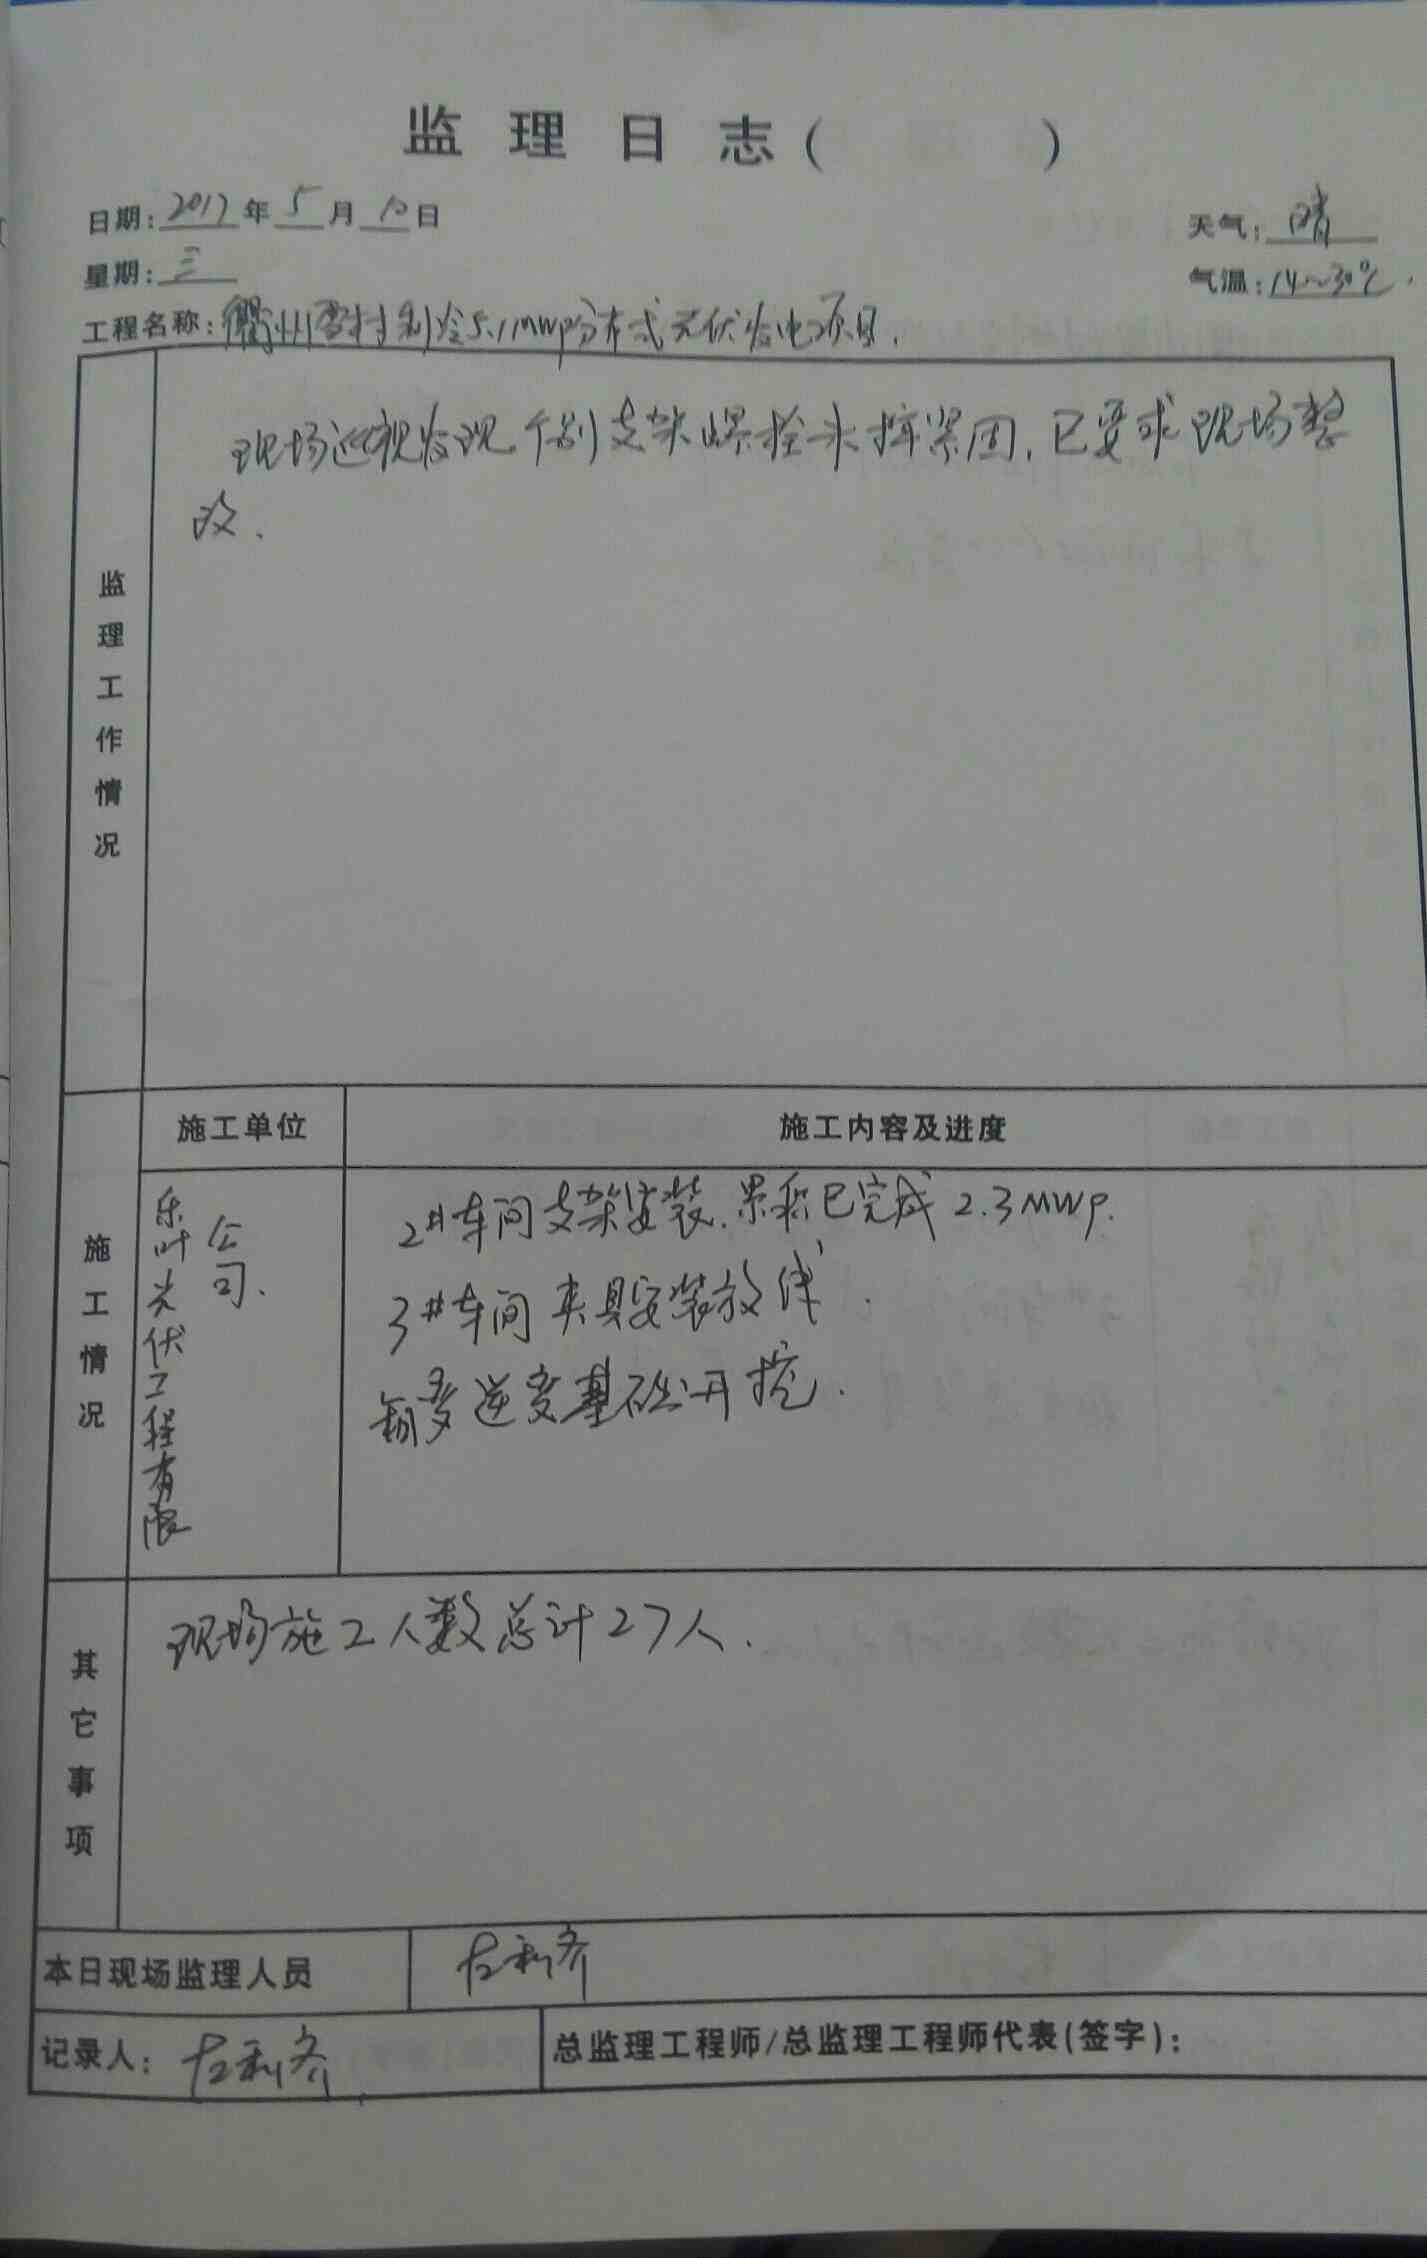 监理日志（ ）
日期：2017年5月10日
天气：晴
星期：三
气温：14~30℃.
工程名称：衢州雪村制冷5.1MWp分布式光伏发电项目.
监理工作情况
现场巡视发现个别支架螺栓未拧紧固，已要求现场整
改.
施工单位
施工内容及进度
施工情况
乐叶光伏工程有限
公司.
2#车间支架安装.累积已完成2.3MWp.
3#车间夹具安装放线.
箱变逆变基础开挖.
其它事项
现场施工人数总计27人.
本日现场监理人员
左利齐
记录人：左利齐
总监理工程师/总监理工程师代表(签字)：